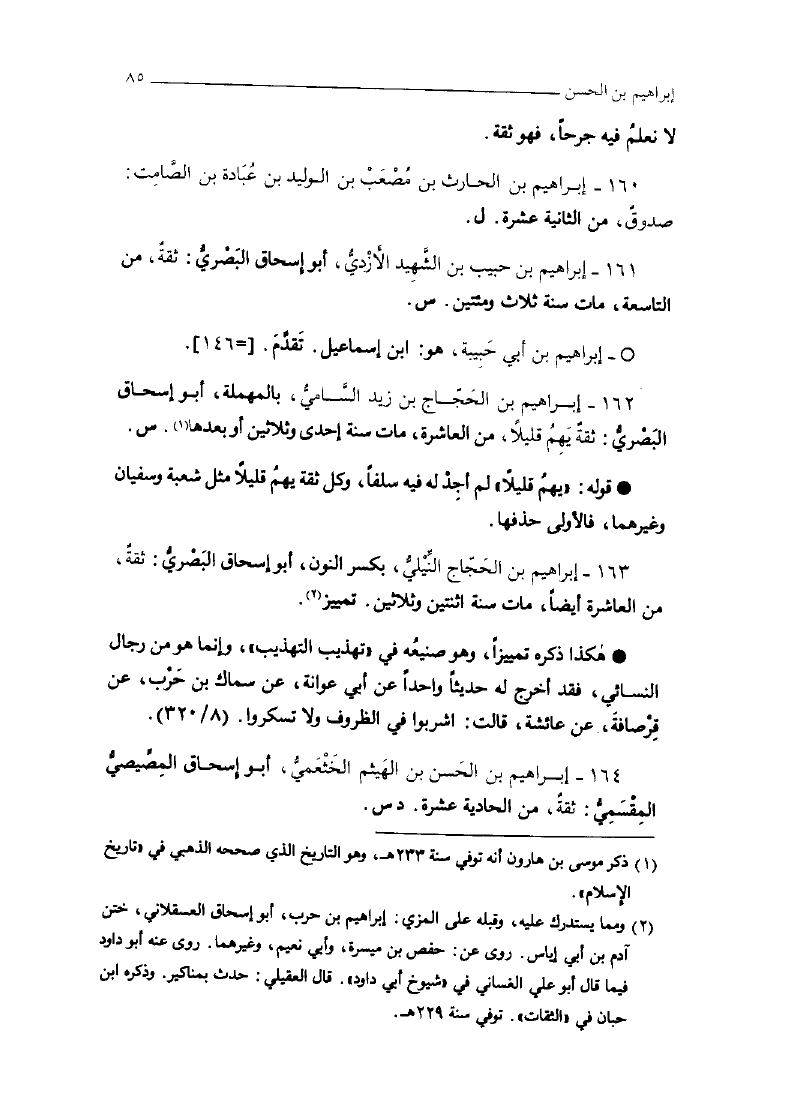 إبراهيم بن الحسن ٨٥
لا نعلمُ فيه جرحاً، فهو ثقة.
١٦٠ - إبراهيم بن الحارث بن مُصْعَبْ بن الوليد بن عُبَادة بن الصَّامِت:
صدوقٌ، من الثانية عشرة. ل.
١٦١ - إبراهيم بن حبيب بن الشَّهِيد الأَزْديُّ، أبو إسحاق البَصْريُّ: ثقةٌ، من
التاسعة، مات سنة ثلاث ومئتين. س.
○ - إبراهيم بن أبي حَبِيبة، هو: ابن إسماعيل. تَقدَّمَ. [=١٤٦].
١٦٢ - إبراهيم بن الحَجّاج بن زيد السَّاميُّ، بالمهملة، أبو إسحاق
البَصْريُّ: ثقةٌ يَهِمُ قليلًا، من العاشرة، مات سنة إحدى وثلاثين أو بعدها(١). س.
● قوله: «يهمُ قليلًا» لم أجِدْ له فيه سلفاً، وكل ثقة يهمُ قليلًا مثل شعبة وسفيان
وغيرهما، فالأولى حذفها.
١٦٣ - إبراهيم بن الحَجّاج النِّيْليُّ، بكسر النون، أبو إسحاق البَصْريُّ: ثقةٌ،
من العاشرة أيضاً، مات سنة اثنتين وثلاثين. تمييز(٢).
● هٰكذا ذكره تمييزاً، وهو صنيعُه في «تهذيب التهذيب»، وإنما هو من رجال
النسائي، فقد أخرج له حديثاً واحداً عن أبي عوانة، عن سماك بن حَرْب، عن
قِرْصافةَ، عن عائشة، قالت: اشربوا في الظروف ولا تسكروا. (٣٢٠/٨).
١٦٤ - إبراهيم بن الحَسن بن الهَيثم الخَثْعَميُّ، أبو إسحاق المِصِّيصيُّ
المِقْسَمِيُّ: ثقةٌ، من الحادية عشرة. د س.
(١) ذكر موسى بن هارون أنه توفي سنة ٢٣٣هـ، وهو التاريخ الذي صححه الذهبي في «تاريخ
الإسلام».
(٢) ومما يستدرك عليه، وقبله على المزي: إبراهيم بن حرب، أبو إسحاق العسقلاني، ختن
آدم بن أبي إياس. روى عن: حفص بن ميسرة، وأبي نعيم، وغيرهما. روى عنه أبو داود
فيما قال أبو علي الغساني في «شيوخ أبي داود». قال العقيلي: حدث بمناكير. وذكره ابن
حبان في «الثقات». توفي سنة ٢٢٩هـ.